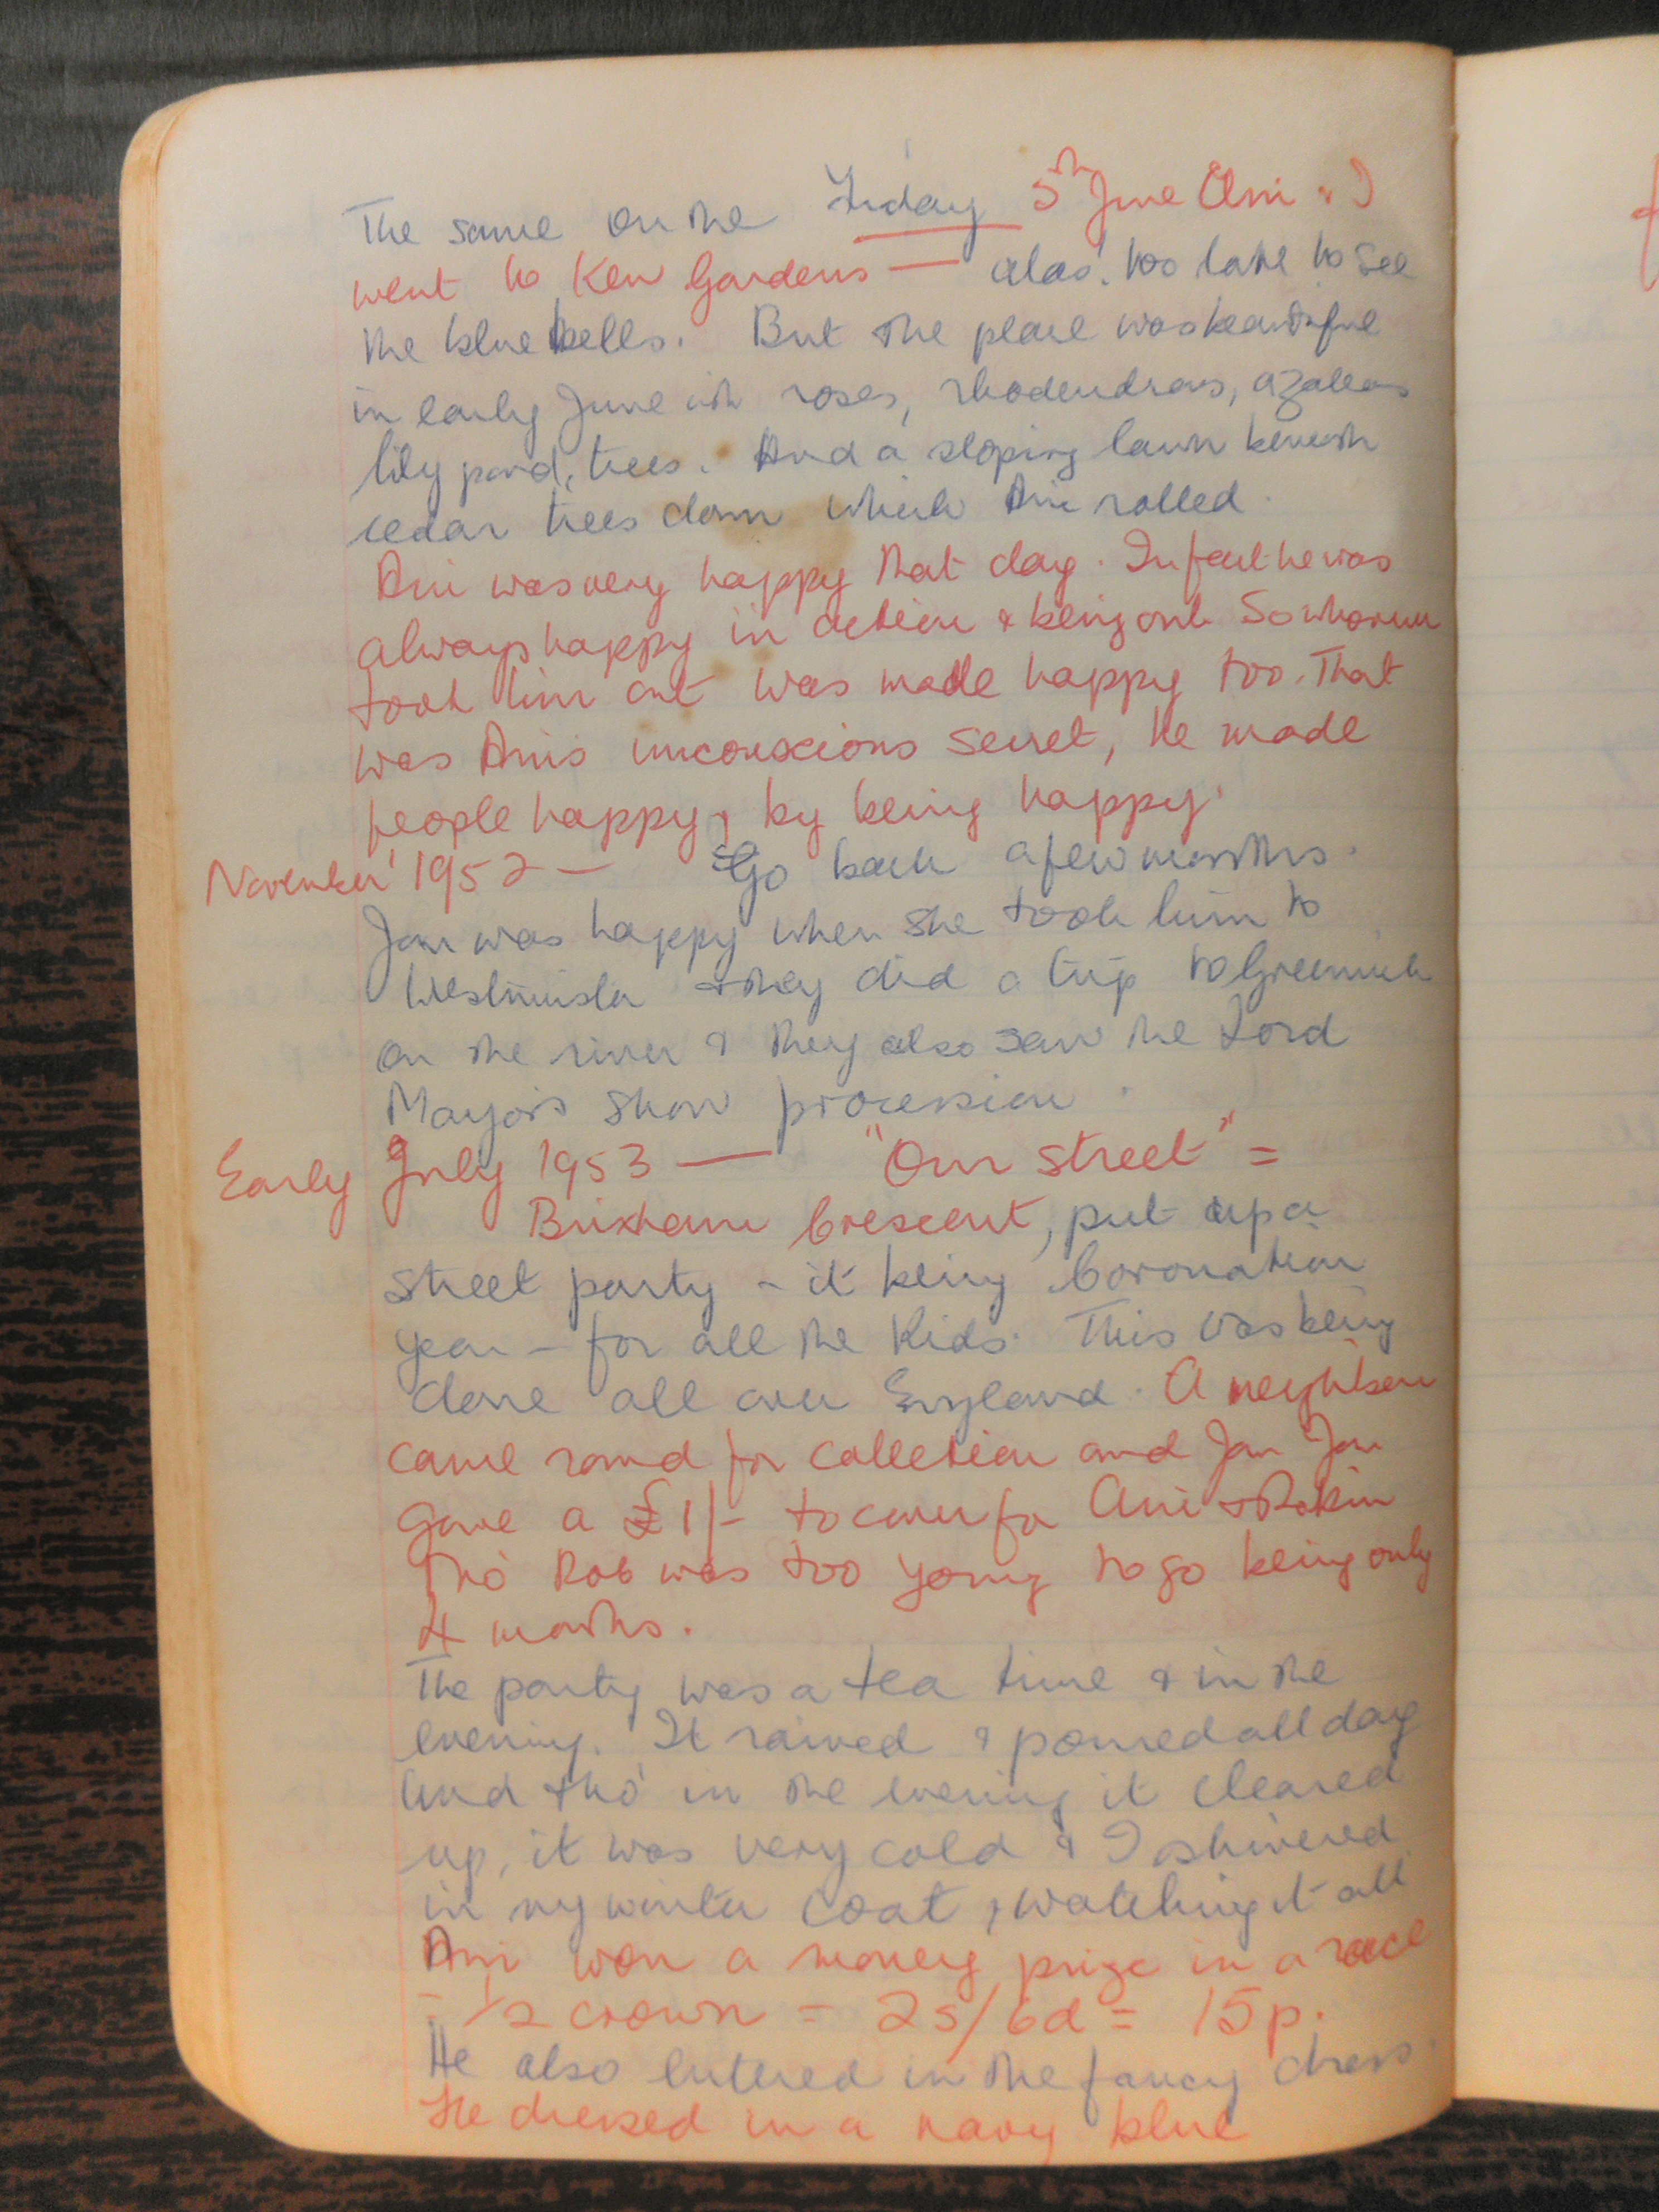 The same on the Friday 5th June Ani & I
went to Kew Gardens — alas! too late to see
the bluebells. But the place was beautiful
in early June with roses, rhodendrons, azaleas
lily pond, trees. And a sloping lawn beneath
cedar trees down which Ani rolled.
Ani was very happy that day. In fact he was
always happy in action & being out. So whoever
took him out was made happy too. That
was Ani's unconscious secret, he made
people happy, by being happy.
November 1952 — Go back a few months.
Jan was happy when she took him to
Westminster & they did a trip to Greenwich
on the river & they also saw the Lord
Mayor's Show procession.
Early July 1953 — "Our Street" =
Brixham Crescent, put up a
street party – it being Coronation
year – for all the Kids. This was being
done all over England. A neighbour
came round for collection and Jan Jan
gave a £1/- to cover for Ani & Robin
tho' Rob was too young to go being only
4 months.
The party was a tea time & in the
evening. It rained & poured all day
and tho' in the evening it cleared
up, it was very cold & I shivered
in my winter coat, watching it all
Ani won a money prize in a race
- ½ crown = 2s/6d = 15p.
He also entered in the fancy dress.
He dressed in a navy blue